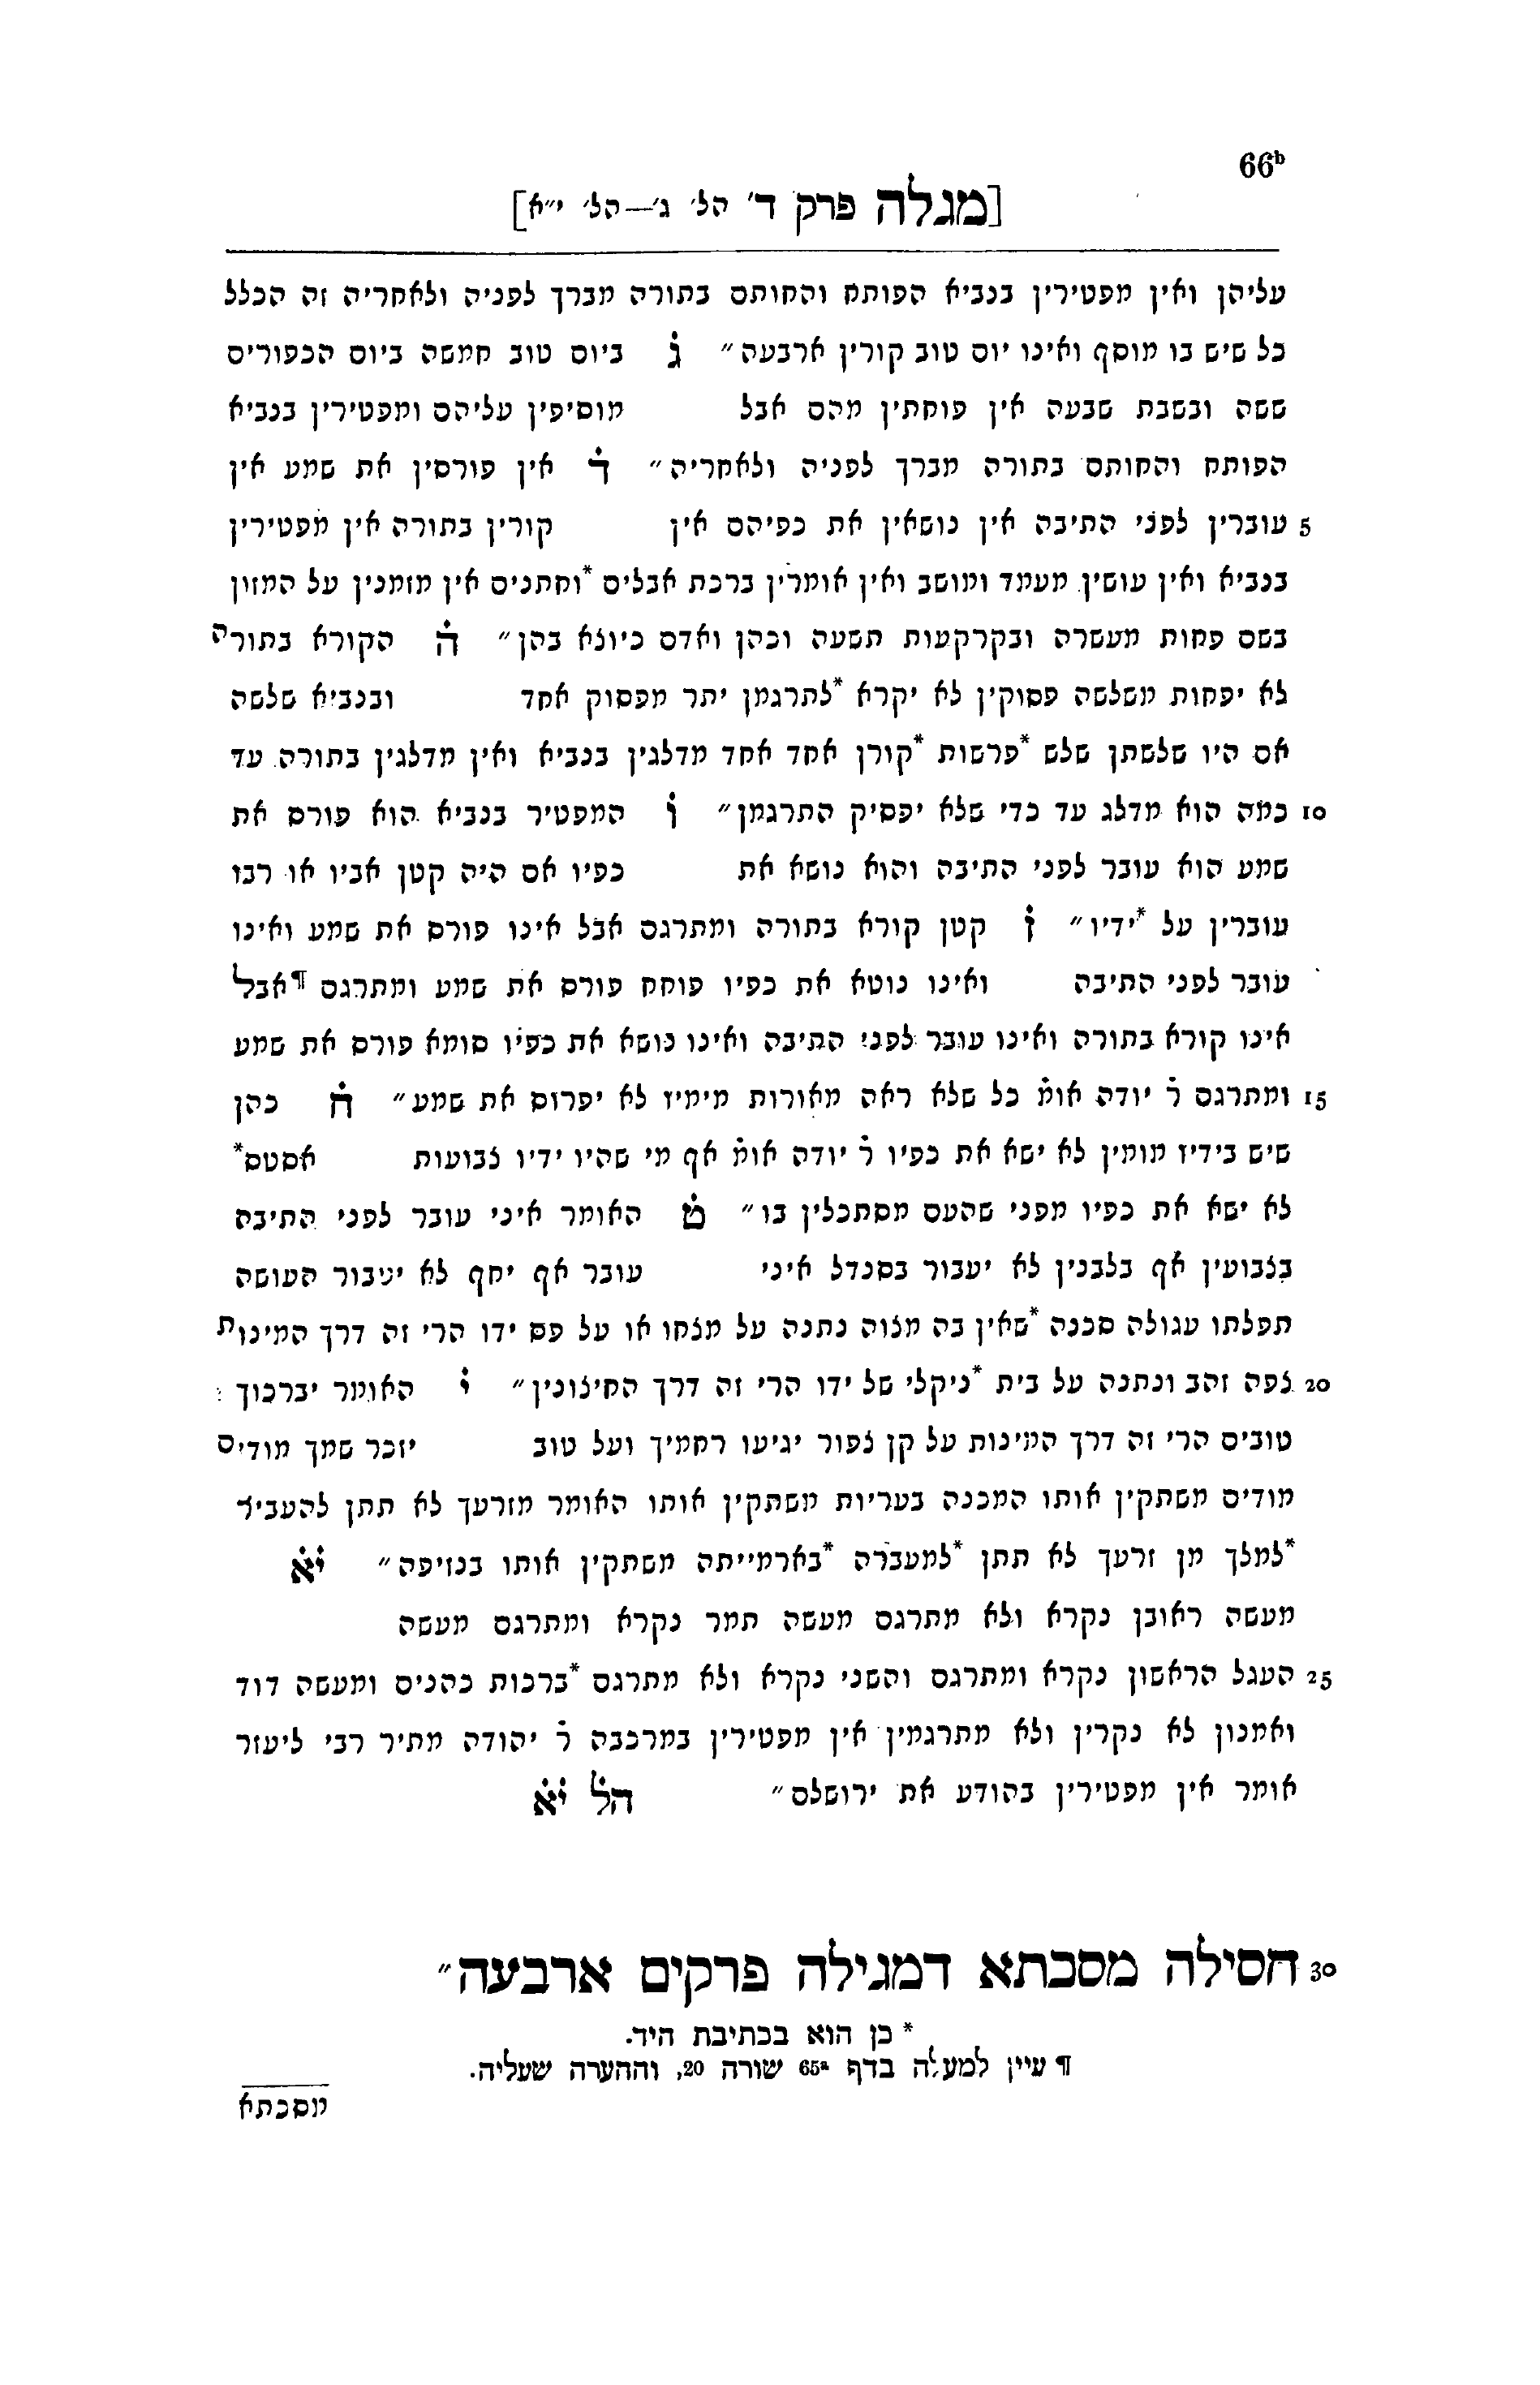 66ᵇ
[מגלה פרק ד׳ הל׳ ג׳—הל׳ י״א]
עליהן ואין מפטירין בנביא הפותח והחותם בתורה מברך לפניה ולאחריה זה הכלל
כל שיש בו מוסף ואינו יום טוב קורין ארבעה״ ג̇ ביום טוב חמשה ביום הכפורים
ששה ובשבת שבעה אין פוחתין מהם אבל מוסיפין עליהם ומפטירין בנביא
הפותח והחותם בתורה מברך לפניה ולאחריה״ ד̇ אין פורסין את שמע אין
5 עוברין לפני התיבה אין נושאין את כפיהם אין קורין בתורה אין מפטירין
בנביא ואין עושין מעמד ומושב ואין אומרין ברכת אבלים *וחתנים אין מזמנין על המזון
בשם פחות מעשרה ובקרקעות תשעה וכהן ואדם כיוצא בהן״ ה̇ הקורא בתורה
לא יפחות משלשה פסוקין לא יקרא *לתרגמן יתר מפסוק אחד ובנביא שלשה
אם היו שלשתן שלש *פרשות *קורן אחד אחד מדלגין בנביא ואין מדלגין בתורה עד
10 כמה הוא מדלג עד כדי שלא יפסיק התרגמן״ ו̇ המפטיר בנביא הוא פורס את
שמע הוא עובר לפני התיבה והוא נושא את כפיו אם היה קטן אביו או רבו
עוברין על *ידיו״ ז̇ קטן קורא בתורה ומתרגם אבל אינו פורס את שמע ואינו
עובר לפני התיבה ואינו נוטא את כפיו פוחח פורס את שמע ומתרגם ¶אבל
אינו קורא בתורה ואינו עובר לפני התיבה ואינו נושא את כפיו סומא פורס את שמע
15 ומתרגם ר̇ יודה אומ̇ כל שלא ראה מאורות מימיו לא יפרוס את שמע״ ח̇ כהן
שיש בידיו מומין לא ישא את כפיו ר̇ יודה אומ̇ אף מי שהיו ידיו צבועות אסטס*
לא ישא את כפיו מפני שהעם מסתכלין בו״ ט̇ האומר איני עובר לפני התיבה
בצבועין אף בלבנין לא יעבור בסנדל איני עובר אף יחף לא יעבור העושה
תפלתו עגולה סכנה *שאין בה מצוה נתנה על מצחו או על פס ידו הרי זה דרך המינות
20 צפה זהב ונתנה על בית *ניקלי של ידו הרי זה דרך החיצונין״ י̇ האומר יברכוך
טובים הרי זה דרך המינות על קן צפור יגיעו רחמיך ועל טוב יזכר שמך מודים
מודים משתקין אותו המכנה בעריות משתקין אותו האומר מזרעך לא תתן להעביר
*למלך מן זרעך לא תתן *למעברה *בארמייתה משתקין אותו בנזיפה״ י̇א̇
מעשה ראובן נקרא ולא מתרגם מעשה תמר נקרא ומתרגם מעשה
25 העגל הראשון נקרא ומתרגם והשני נקרא ולא מתרגם *ברכות כהנים ומעשה דוד
ואמנון לא נקרין ולא מתרגמין אין מפטירין במרכבה ר̇ יהודה מתיר רבי ליעזר
אומר אין מפטירין בהודע את ירושלם״ הל̇ י̇א̇
30 חסילה מסכתא דמגילה פרקים ארבעה״
* כן הוא בכתיבת היד.
¶ עיין למעלה בדף 65ᵃ שורה 20, וההערה שעליה.
מסכתא